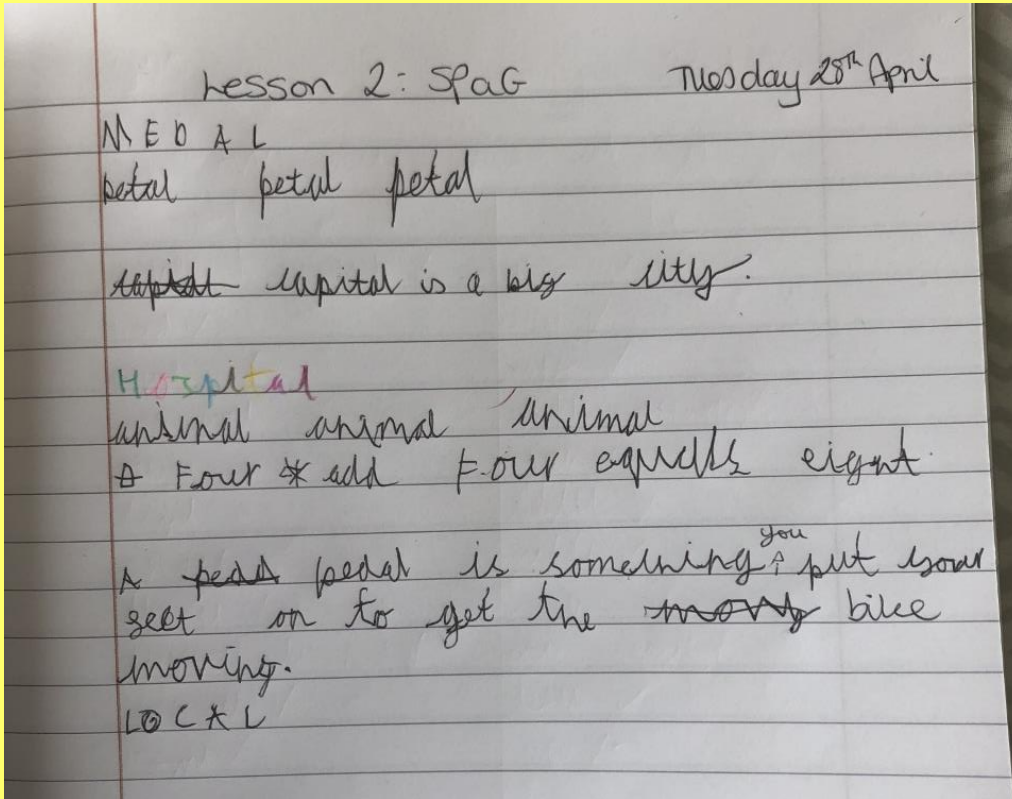 Lesson 2: SPaG Tuesday 28th April
MEDAL
petal petal petal
capital is a big city.
Hospital
animal animal animal
Four add Four equells eight.
A pedal is something you put your
feet on to get the bike
moving.
LOCAL